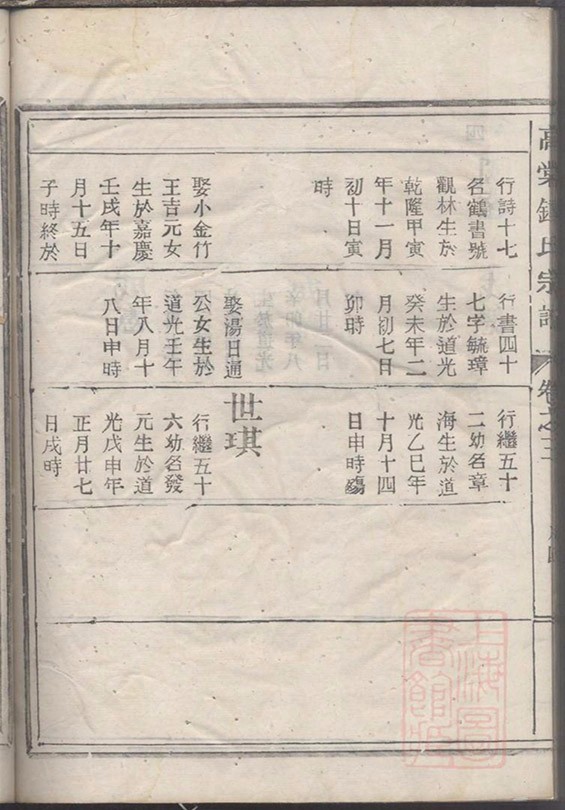 高
氏宗譜
卷之三
行詩十七
名鶴書號
觀林生於
乾隆甲寅
年十一月
初十日寅
時
娶小金竹
王吉元女
生於嘉慶
壬戌年十
月十五日
子時終於
行書四十
七字毓璋
生於道光
癸未年二
月初七日
卯時
娶湯日通
公女生於
道光壬午
年八月十
八日申時
行繼五十
二幼名章
海生於道
光乙巳年
十月十四
日申時殤
世琪
行繼五十
六幼名發
元生於道
光戊申年
正月廿七
日戌時
上海圖
書館藏